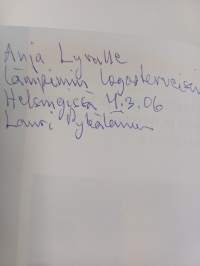 Anja Lyralle
lämpimin logosterveisin
Helsingissä 4.3.06
Lauri Pykäläinen